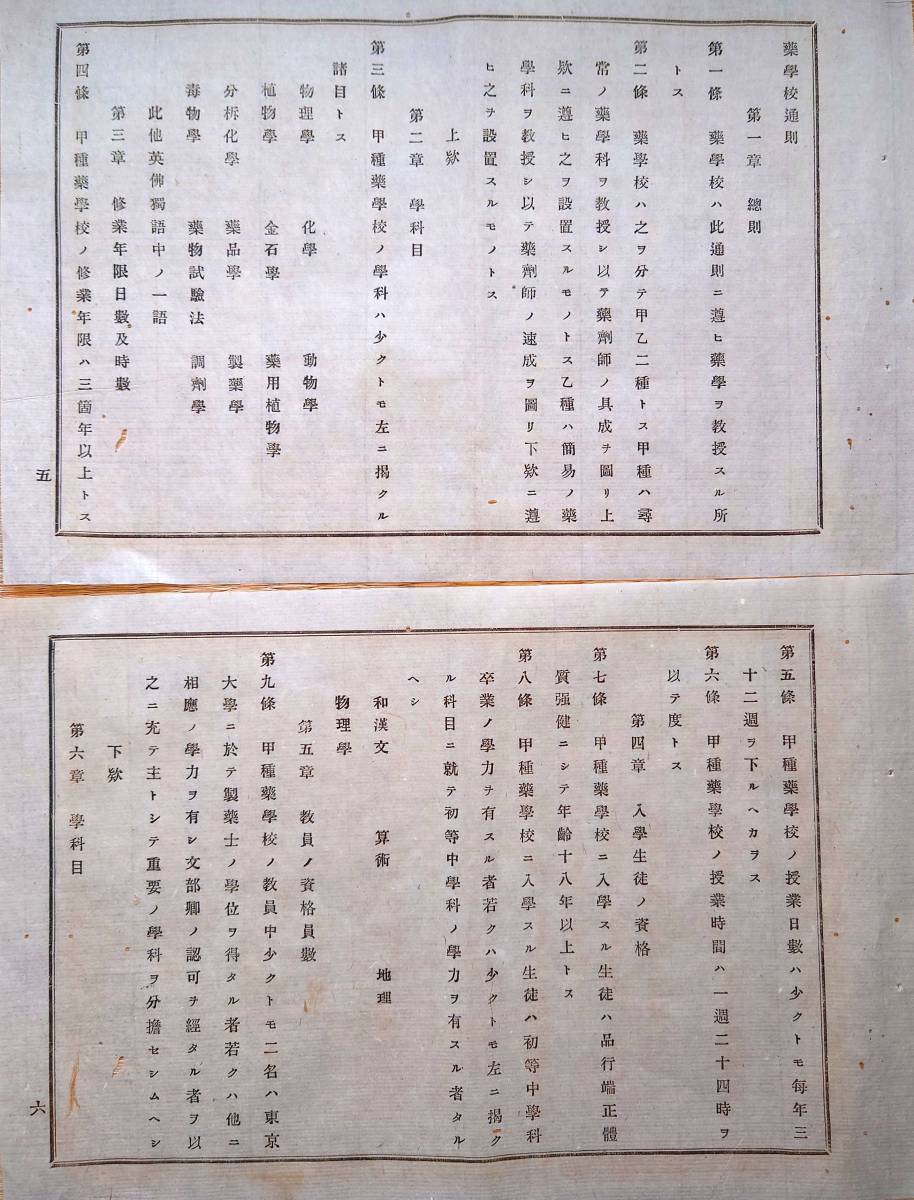 藥學校通則
第一章 總則
第一條 藥學校ハ此通則ニ遵ヒ藥學ヲ教授スル所
トス
第二條 藥學校ハ之ヲ分テ甲乙二種トス甲種ハ尋
常ノ藥學科ヲ教授シ以テ藥劑師ノ具成ヲ圖リ上
欵ニ遵ヒ之ヲ設置スルモノトス乙種ハ簡易ノ藥
學科ヲ教授シ以テ藥劑師ノ速成ヲ圖リ下欵ニ遵
ヒ之ヲ設置スルモノトス
上欵
第二章 學科目
第三條 甲種藥學校ノ學科ハ少クトモ左ニ揭クル
諸目トス
物理學 化學 動物學
植物學 金石學 藥用植物學
分析化學 藥品學 製藥學
毒物學 藥物試驗法 調劑學
此他英佛獨語中ノ一語
第三章 修業年限日數及時數
第四條 甲種藥學校ノ修業年限ハ三箇年以上トス
五
第五條 甲種藥學校ノ授業日數ハ少クトモ每年三
十二週ヲ下ルヘカラス
第六條 甲種藥學校ノ授業時間ハ一週二十四時ヲ
以テ度トス
第四章 入學生徒ノ資格
第七條 甲種藥學校ニ入學スル生徒ハ品行端正體
質强健ニシテ年齡十八年以上トス
第八條 甲種藥學校ニ入學スル生徒ハ初等中學科
卒業ノ學力ヲ有スル者若クハ少クトモ左ニ揭ク
ル科目ニ就テ初等中學科ノ學力ヲ有スル者タル
ヘシ
和漢文 算術 地理
物理學
第五章 教員ノ資格員數
第九條 甲種藥學校ノ教員中少クトモ二名ハ東京
大學ニ於テ製藥士ノ學位ヲ得タル者若クハ他ニ
相應ノ學力ヲ有シ文部卿ノ認可ヲ經タル者ヲ以
之ニ充テ主トシテ重要ノ學科ヲ分擔セシムヘシ
下欵
第六章 學科目
六